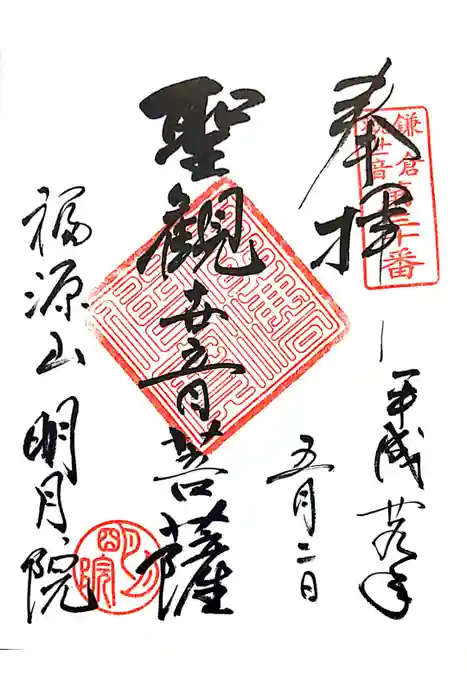 奉拝
鎌倉
観世音
第三十番
平成廿九年
五月二日
聖觀世音菩薩
福源山 明月院
明月院